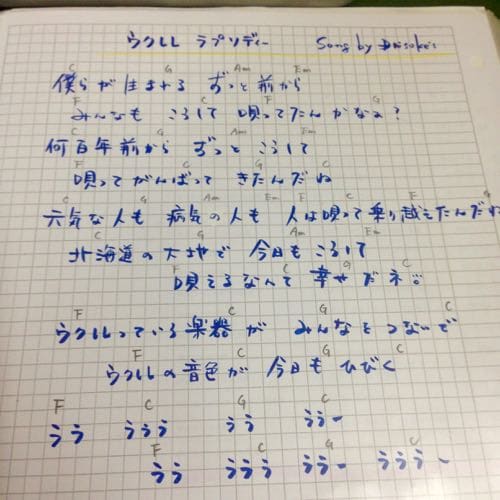 ウクレレ ラプソディー Song by Daisuke's
C G Am Em
僕らが生まれる ずっと前から
F C F G
みんなも こうして 唄ってたんかなぁ?
C G Am Em
何百年前から ずっと こうして
F C G C
唄って がんばって きたんだね
C G Am Em F C G
元気な人も 病気の人も 人は唄って乗り越えたんだね
C G Am Em
北海道の大地で 今日も こうして
F C G C
唄えるなんて 幸せだネ
F C G C
ウクレレっている楽器が みんなをつないで
F C G C
ウクレレの音色が 今日も ひびく
F C G C
うう ううう うう ううー
F C G C
うう ううう ううー うううー